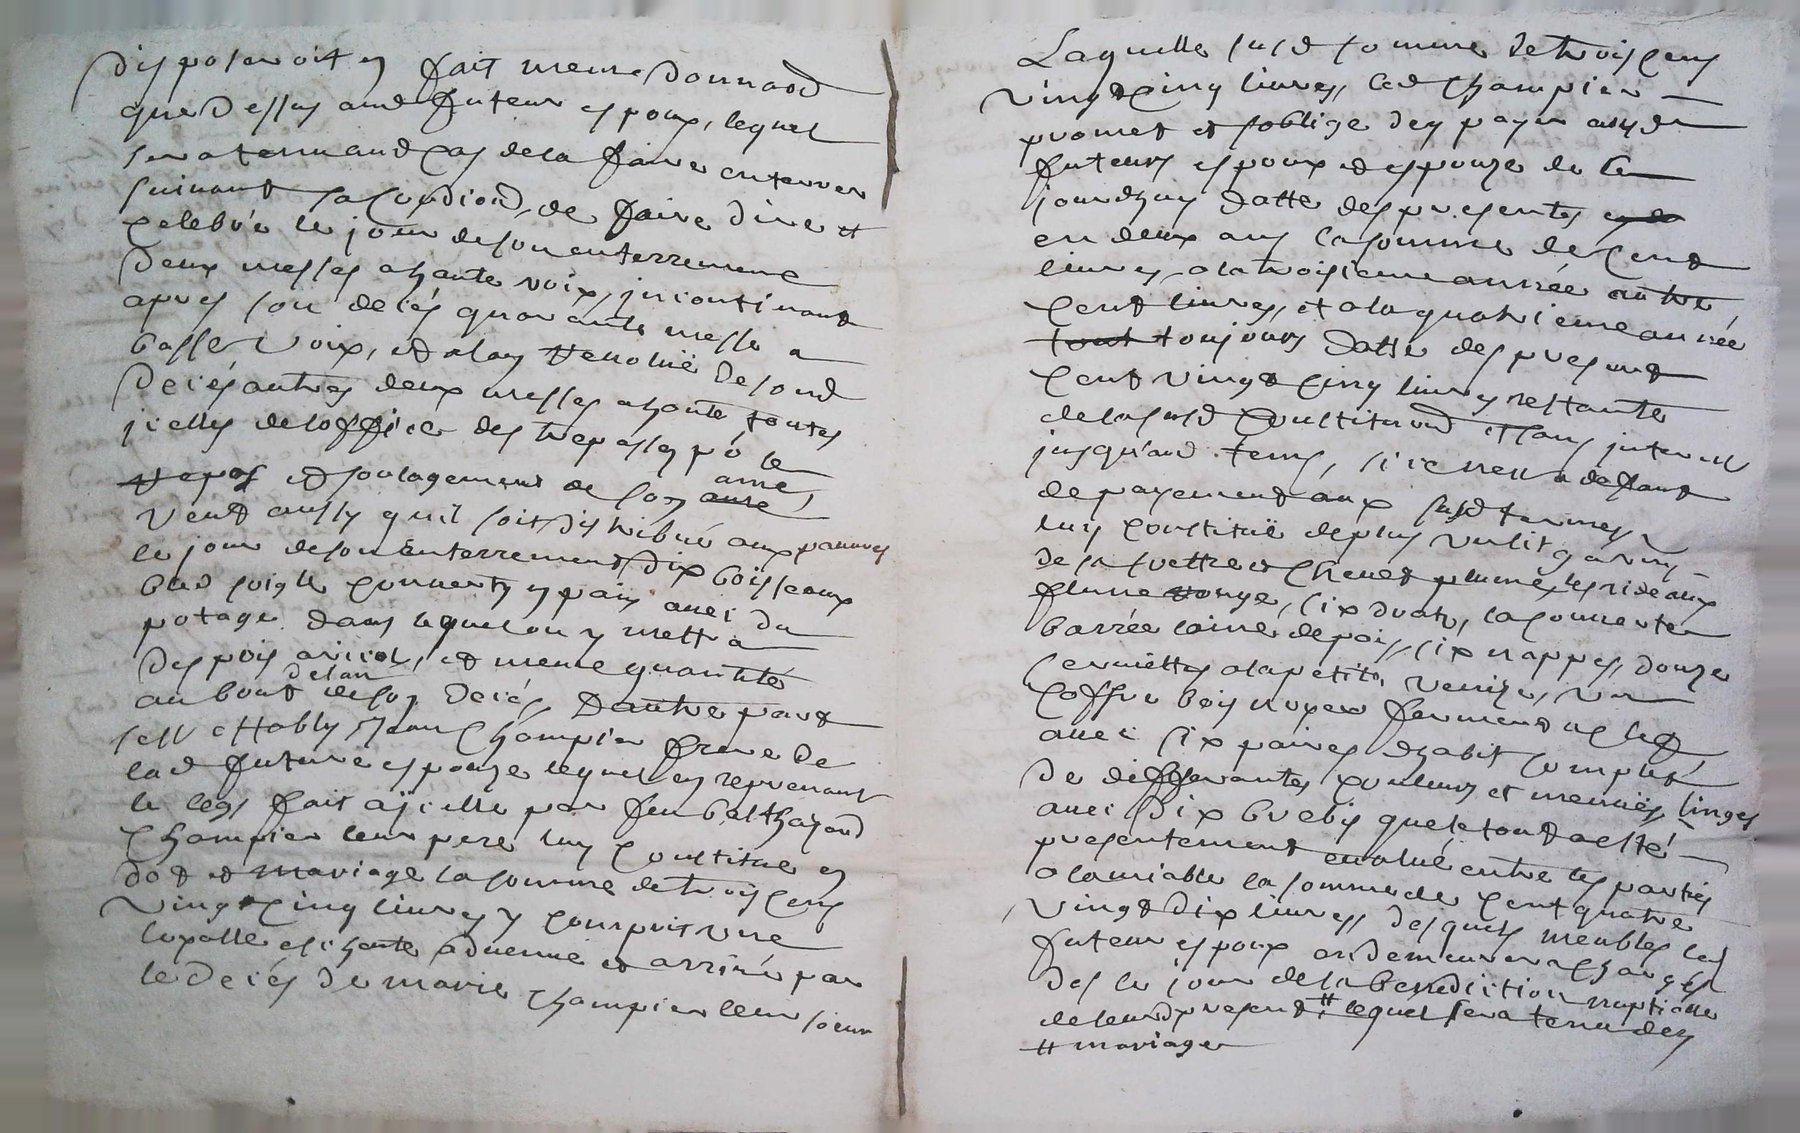 disposer oit en fait meme donnaôn
que dessus aud futeur espoux, lequel
sera tenu aud cas de la faire enterrer
suivant sa condiôn, de faire dire et
celebré le jour de son enterrement
deux messes a haute voix, incontinant
apres son decés quarante messe a
basse voix, et a lan revolué de sond
decés autres deux messes ahaute toutes
icelles de loffice des trepasses pô le
repos et soulagement de son ame ame,
veut aussy quil soit distribué aux pauvres
le jour de son enterrement dix boisseaux
bled soigle convertis en pain avec du
potage dans lequel on y mettra
des pois aricot, et meme quantité
au bout de lan de son decés, Dautre part
sest estably Jean Champier frere de
lad future espouze lequel en reprenant
le legs fait a jcelle par feu balthazard
Champier leur pere luy constitue en
dot et mariage la somme de trois cens
vingt cinq livres y compris une
eschoite advenue et arrivée par
le decés de marie champier leur soeur
Laquelle susd somme de trois cens
vingt cinq livres, led Champier
promet et soblige den payer ausd
futeurs espoux et espouze de ce
jourdhuy datte des presentes
en deux ans la somme de cent
livres, a la troisieme année autre
cent livres, et a la quatrieme année
tout toujours datte des present
cent vingt cinq livres restante
de la susd constituôn et sans interest
jusquaud tems, si ce nest a defaut
de payement aux susd termes
luy constitué de plus un lit garny
de sa couettre et chevet plume, les rideaux
flene rouge, six drats, la couverte
barrée laine de pois, six nappes, douze
serviettes a la petite venize, un
coffre bois noyer fermant a clef
avec six paires dhabit complet
de differantes couleurs et menues linges
avec dix brebis que le tout a esté
presentement evalué entre les parties
a lamiable la somme de cent quatre
vingt dix livres, desquels meubles led
futeur espoux en demeurera chargé
des le jour de la benediction nuptialle
de leurd present # lequel sera tenu den
# mariage